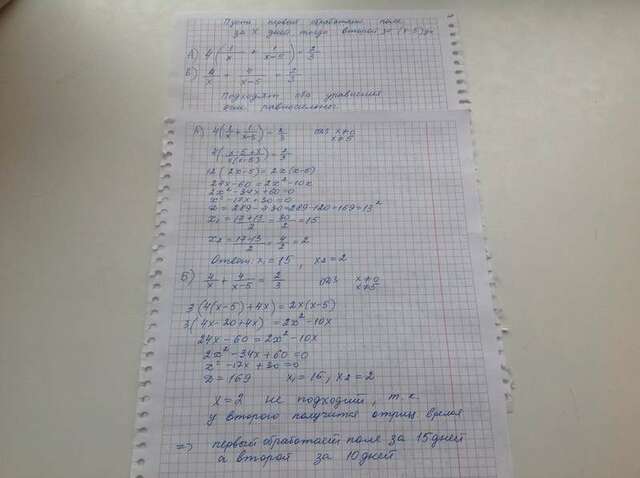 Пусть первый обработает поле
за X дней тогда второй за (x-5) дн
А) 4(1/x + 1/(x-5)) = 2/3
Б) 4/x + 4/(x-5) = 2/3
Подходят оба уравнения
они равносильны
А) 4(1/x + 1/(x-5)) = 2/3 ОДЗ x≠0
x≠5
4((x-5+x)/(x(x-5))) = 2/3
12(2x-5) = 2x(x-5)
24x-60 = 2x²-10x
2x²-34x+60=0
x²-17x+30=0
D = 289-4·30=289-120=169=13²
x₁ = (17+13)/2 = 30/2 = 15
x₂ = (17-13)/2 = 4/2 = 2
Ответ: x₁=15, x₂=2
Б) 4/x + 4/(x-5) = 2/3 ОДЗ x≠0
x≠5
3(4(x-5)+4x)=2x(x-5)
3(4x-20+4x) = 2x²-10x
24x-60=2x²-10x
2x²-34x+60=0
x²-17x+30=0
D=169 x₁=15, x₂=2
X=2 не подходит, т.к.
у второго получится отриц время
=> первый обработает поле за 15 дней
а второй за 10 дней